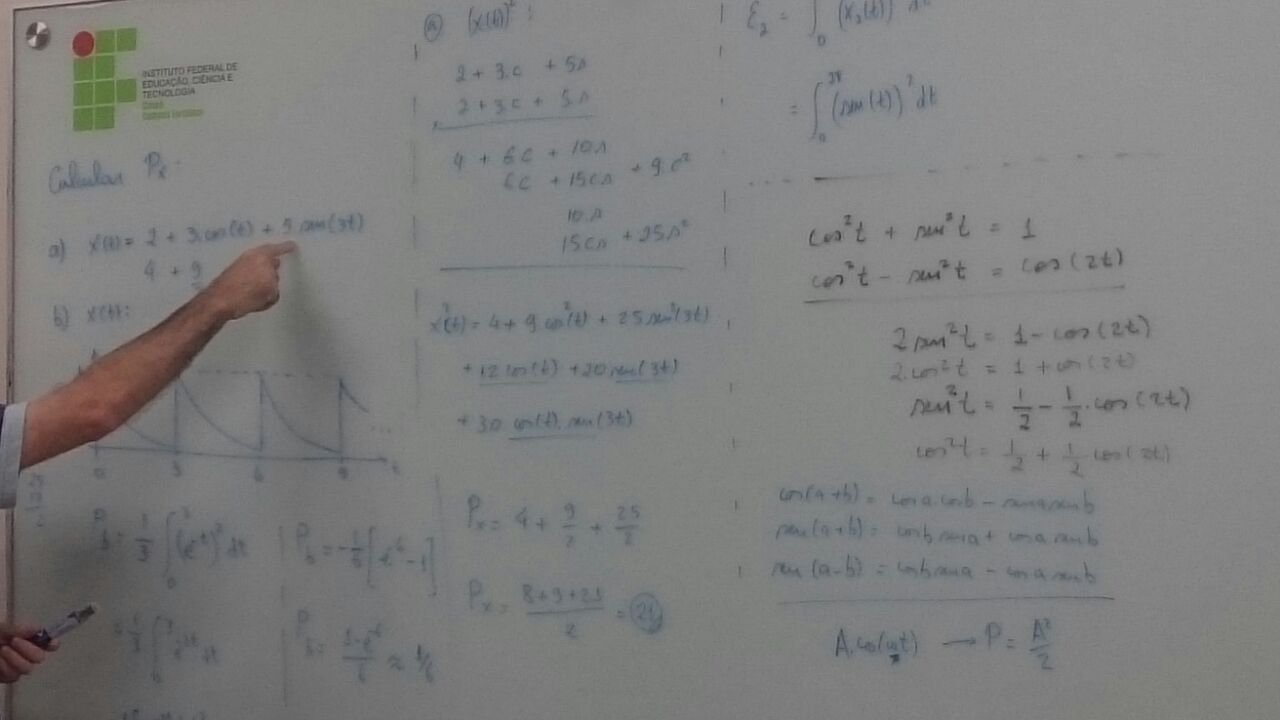 INSTITUTO FEDERAL DE
EDUCAÇÃO, CIÊNCIA E
TECNOLOGIA
Ceará
Calcular Px:
a) x(t) = 2 + 3.cos(t) + 5 sen(3t)
4 + 9
b) x(t):
0 3 6 9 t
...
= 1/3 ∫ (e^-t)² dt
P = -1/6 [e^-6 - 1]
P = (1 - e^-6)/6 ≈ 1/6
@ (x(t))²:
2 + 3.c + 5s
x 2 + 3c + 5s
4 + 6c + 10s
6c + 15cs + 9.c²
10s
15cs + 25s²
x²(t) = 4 + 9 cos²(t) + 25 sen²(3t)
+ 12 cos(t) + 20 sen(3t)
+ 30 cos(t). sen(3t)
Px = 4 + 9/2 + 25/2
Px = = 21
E2 = ∫0 (x2(t))² dt
= ∫0 (sen(t))² dt
cos²t + sen²t = 1
cos²t - sen²t = cos(2t)
2 sen²t = 1 - cos(2t)
2.cos²t = 1 + cos(2t)
sen²t = 1/2 - 1/2.cos(2t)
cos²t = 1/2 + 1/2 cos(2t)
cos(a+b) = cosa.cosb - sena senb
sen(a+b) = cosb sena + cosa senb
sen(a-b) = cosb sena - cosa senb
A.cos(ωt) → P = A²/2